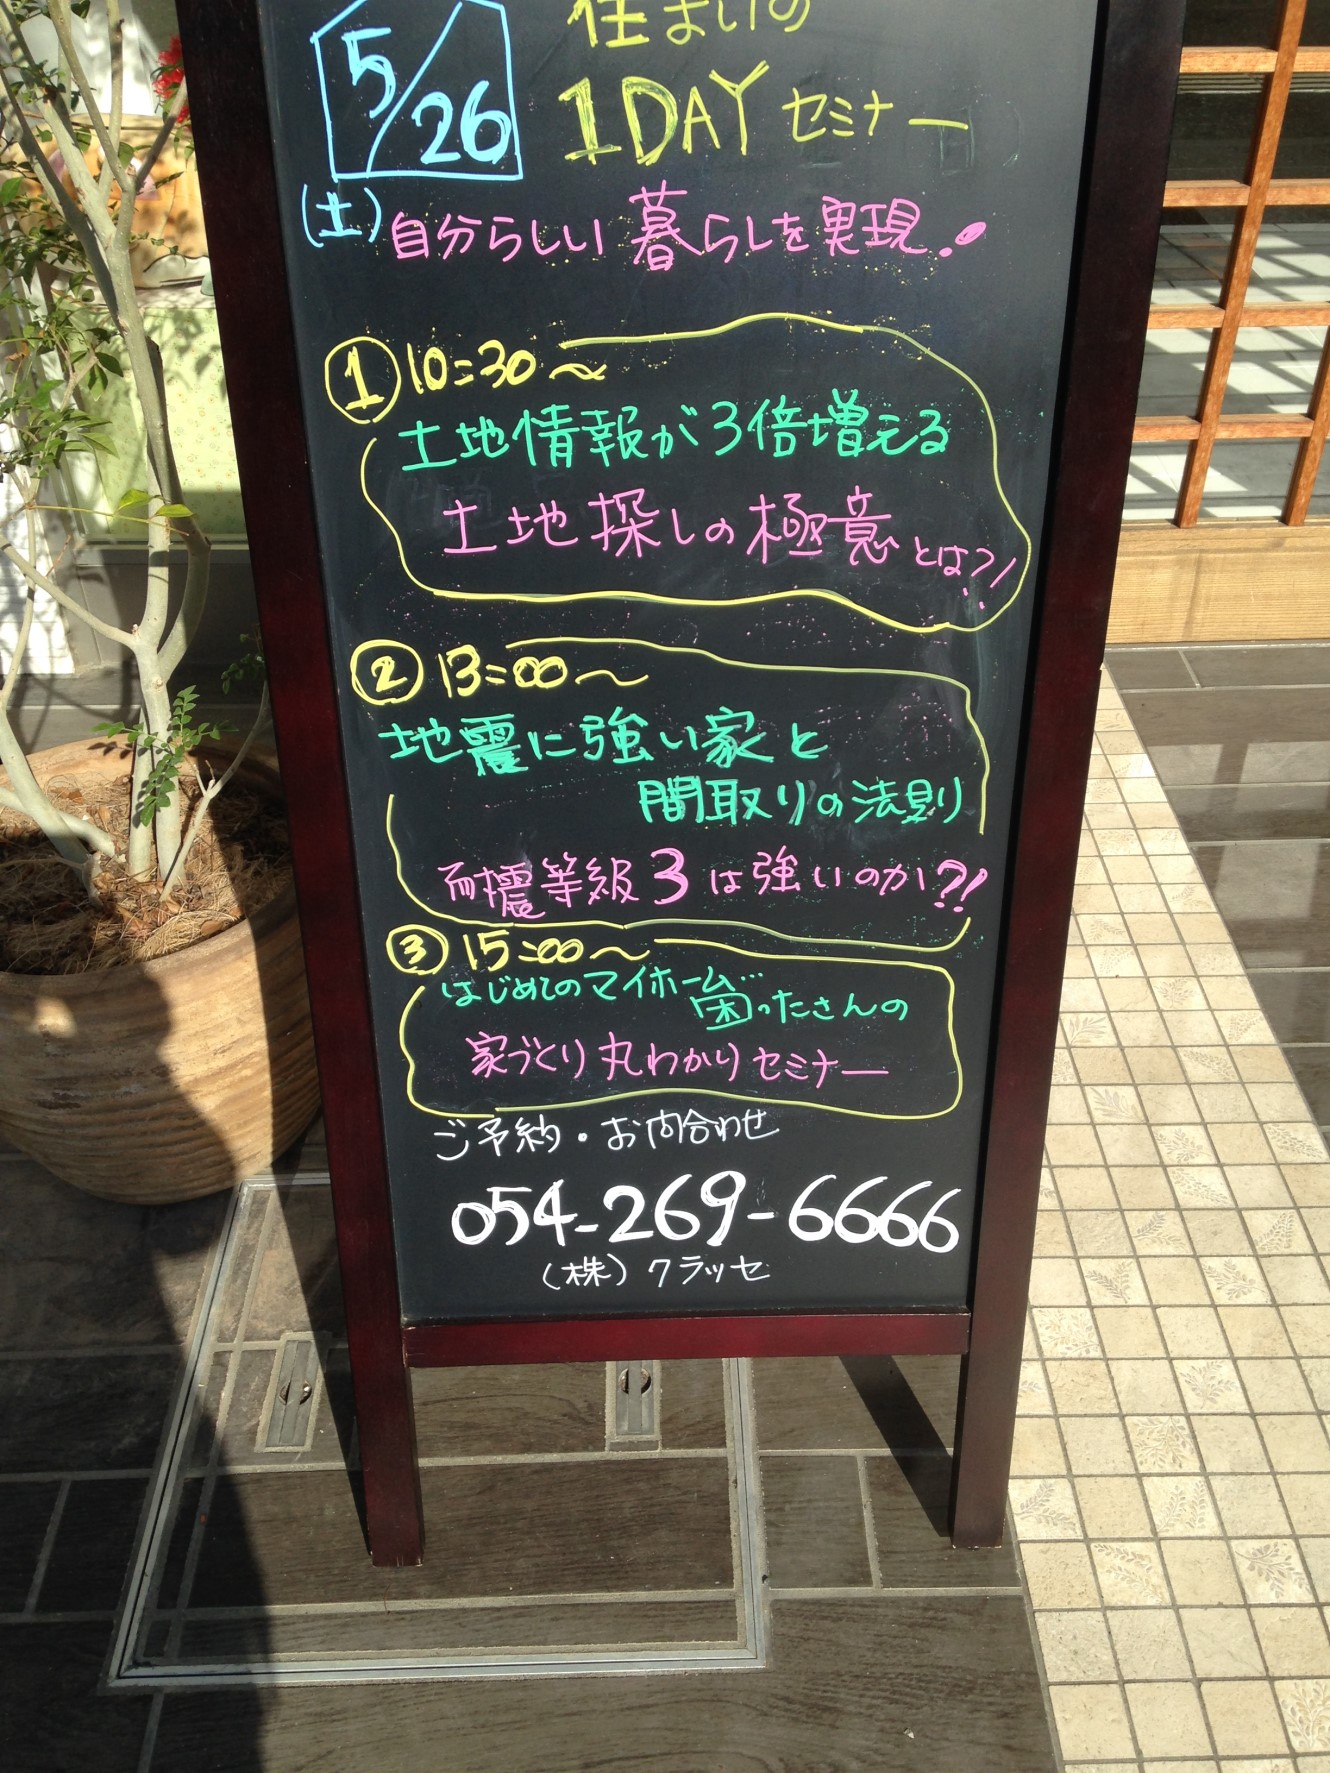 5/26
(土)
住まいの
1DAY セミナー
自分らしい暮らしを実現!
① 10:30〜
土地情報が3倍増える
土地探しの極意とは?!
② 13:00〜
地震に強い家と
間取りの法則
耐震等級3は強いのか?!
③ 15:00〜
はじめてのマイホーム…
困ったさんの
家づくり丸わかりセミナー
ご予約・お問合わせ
054-269-6666
(株)クラッセ